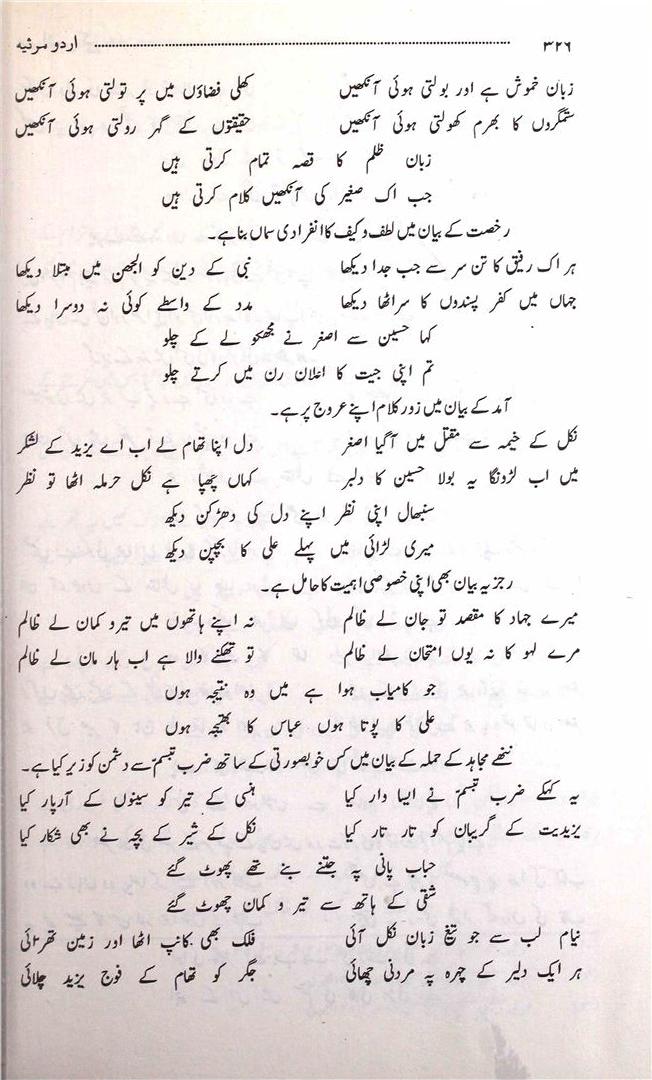 ۳۲۶ اردو مرثیہ
زبان خموش ہے اور بولتی ہوئی آنکھیں کھلی فضاؤں میں پر تولتی ہوئی آنکھیں
ستمگروں کا بھرم کھولتی ہوئی آنکھیں حقیقتوں کے گہر رولتی ہوئی آنکھیں
زبان ظلم کا قصہ تمام کرتی ہیں
جب اک صغیر کی آنکھیں کلام کرتی ہیں
رخصت کے بیان میں لطف و کیف کا انفرادی سماں بنا ہے۔
ہر اک رفیق کا تن سر سے جب جدا دیکھا نبی کے دین کو الجھن میں مبتلا دیکھا
جہاں میں کفر پسندوں کا سر اٹھا دیکھا مدد کے واسطے کوئی نہ دوسرا دیکھا
کہا حسین سے اصغر نے مجھکو لے کے چلو
تم اپنی جیت کا اعلان رن میں کرتے چلو
آمد کے بیان میں زور کلام اپنے عروج پر ہے۔
نکل کے خیمہ سے مقتل میں آگیا اصغر دل اپنا تھام لے اب اے یزید کے لشکر
میں اب لڑونگا یہ بولا حسین کا دلبر کہاں چھپا ہے نکل حرملہ اٹھا تو نظر
سنبھال اپنی نظر اپنے دل کی دھڑکن دیکھ
میری لڑائی میں پہلے علی کا بچپن دیکھ
رجزیہ بیان بھی اپنی خصوصی اہمیت کا حامل ہے۔
میرے جہاد کا مقصد تو جان لے ظالم نہ اپنے ہاتھوں میں تیر و کمان لے ظالم
مرے لہو کا نہ یوں امتحان لے ظالم تو تھکنے والا ہے اب ہار مان لے ظالم
جو کامیاب ہوا ہے میں وہ نتیجہ ہوں
علی کا پوتا ہوں عباس کا بھتیجہ ہوں
ننھے مجاہد کے حملہ کے بیان میں کس خوبصورتی کے ساتھ ضرب تبسم سے دشمن کو زیر کیا ہے۔
یہ کہکے ضرب تبسم نے ایسا وار کیا ہنسی کے تیر کو سینوں کے آر پار کیا
یزیدیت کے گریبان کو تار تار کیا نکل کے شیر کے بچہ نے بھی شکار کیا
حباب پانی پہ جتنے بنے تھے پھوٹ گئے
شقی کے ہاتھ سے تیر و کمان چھوٹ گئے
نیام لب سے جو تیغ زبان نکل آئی فلک بھی کانپ اٹھا اور زمین تھرتائی
ہر ایک دلیر کے چہرہ پہ مردنی چھائی جگر کو تھام کے فوج یزید چلائی